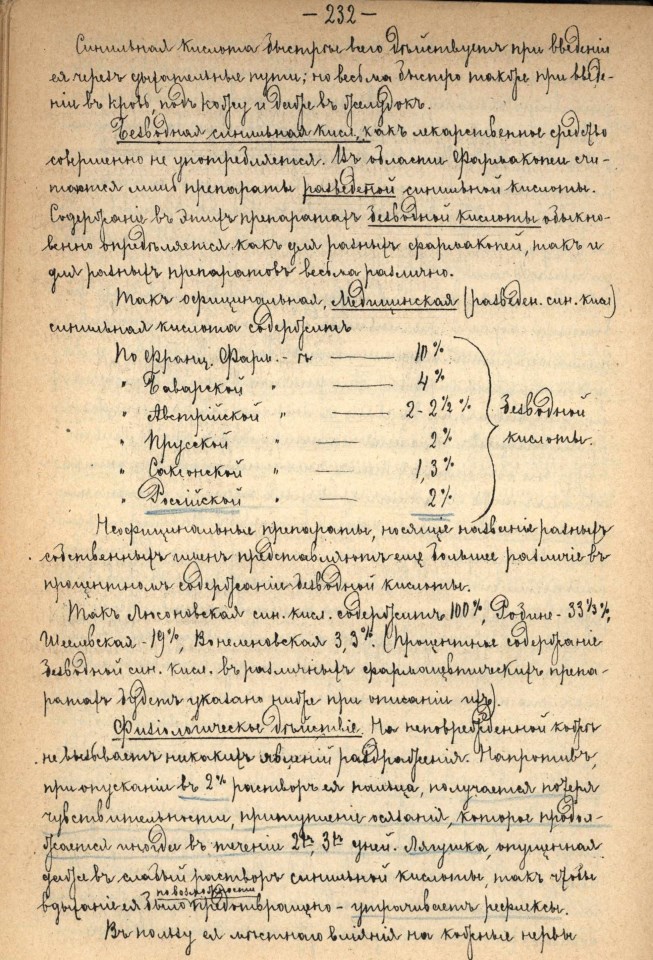 — 232 —
Синильная кислота быстрѣе всего дѣйствуетъ при введеніе
ея черезъ дыхательные пути; но весьма быстро также при введе-
ніи въ кровь, подъ кожу и даже въ желудокъ.
Безводная синильная кисл., какъ лекарственное средство
совершенно не употребляется. Въ области Фармакопеи счи-
таются лишь препараты разведеной синильной кислоты.
Содержаніе въ этихъ препаратахъ безводной кислоты обыкно-
венно опредѣляется какъ для разныхъ фармакопей, такъ и
для разныхъ препаратовъ весьма различно.
Такъ официнальная, Медицинская (разведен. син. кисл)
синильная кислота содержитъ
По Франц. Фарм. — 10%
" Баварской " — 4%
" Австрійской " — 2-2 1/2 %
" Прусской " — 2%
" Саксонской " — 1,3%
" Россійской " — 2%
безводной
кислоты.
Неофицинальные препараты, носящіе названіе разныхъ
собственныхъ именъ представляютъ еще большее различіе въ
процентномъ содержаніе безводной кислоты.
Такъ син. кисл. содержитъ 100%, - 33 1/3 %,
Шеельская - 19%, 3,3%. (Процентное содержаніе
безводной син. кисл. въ различныхъ фармацевтическихъ препа-
ратахъ будетъ указано ниже при описаніи ихъ).
Физіологическое дѣйствіе. На неповрежденной кожѣ
не вызываетъ никакихъ явленій раздраженія. Напротивъ,
при опусканіи въ 2% растворъ ея пальца, получается потеря
чувствительности, притупленіе осязанія, которое продол-
жается иногда въ теченіе 2хъ, 3хъ дней. Лягушка, опущенная
даже въ слабый растворъ синильной кислоты, такъ чтобы
по возможности
вдыханіе ея было предотвращено - утрачиваетъ рефлексы.
Въ пользу ея мѣстнаго вліянія на кожные нервы